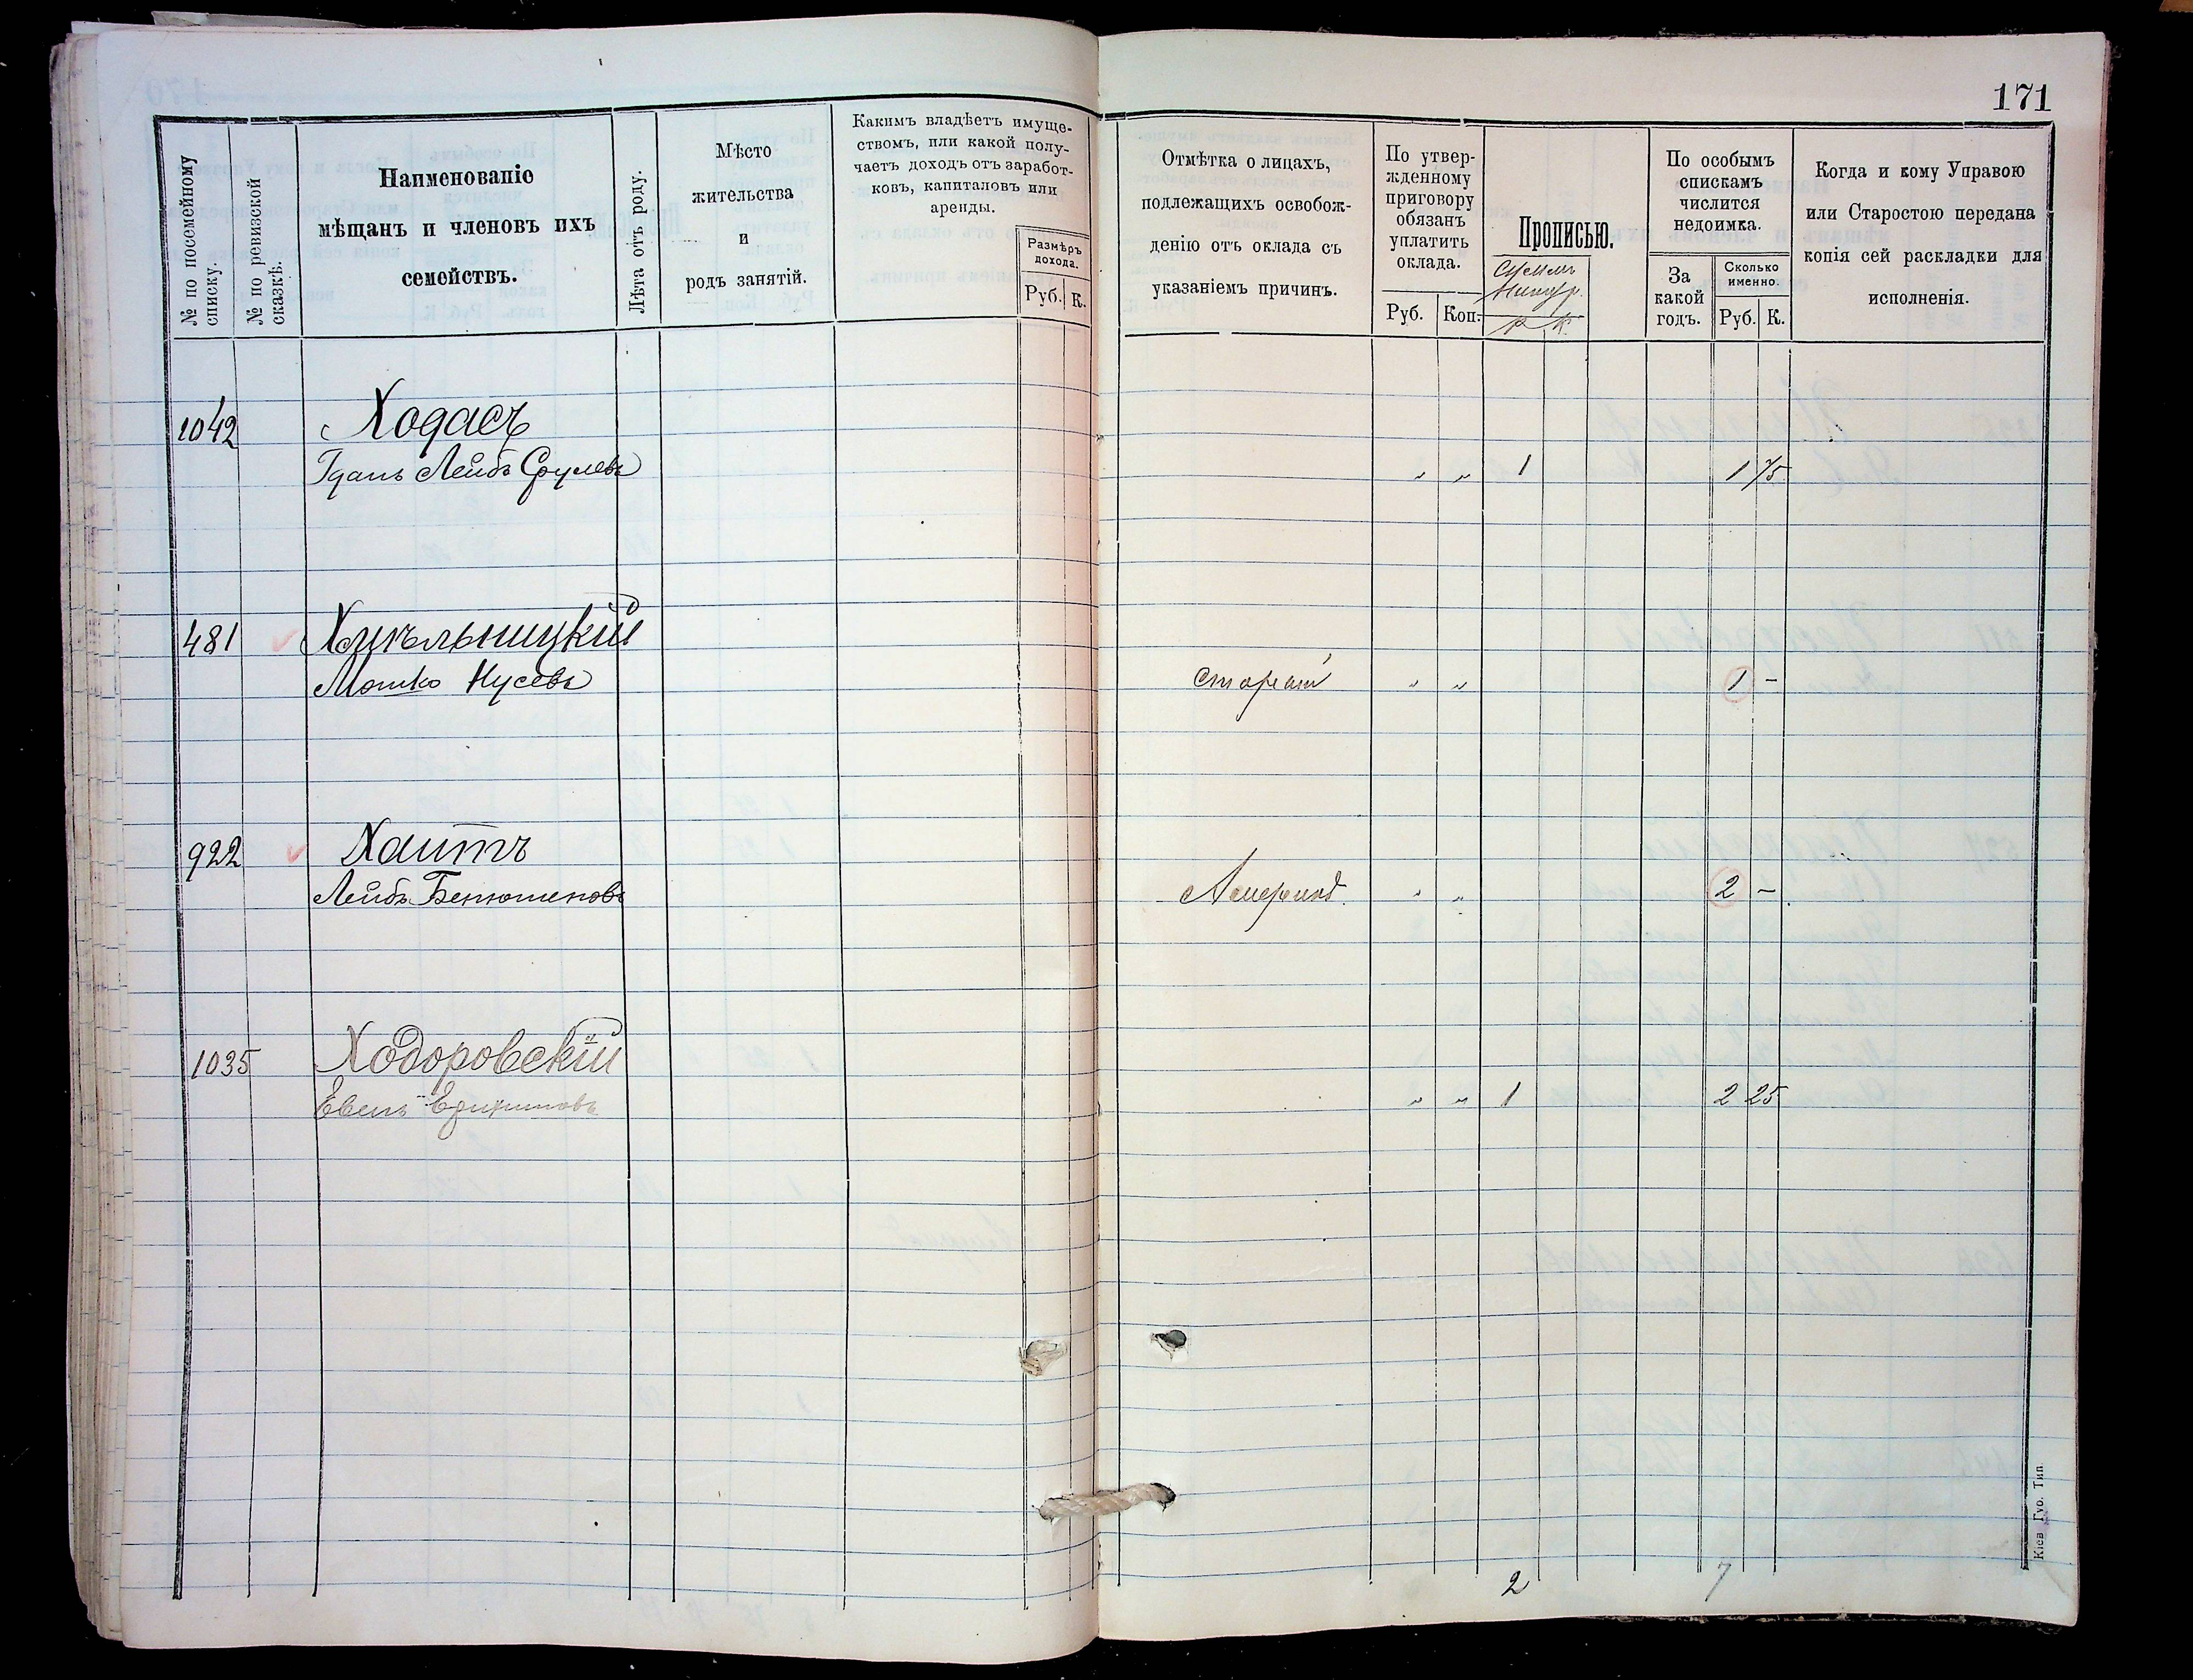 171
№ по посемейному
списку.
№ по ревизской
сказкѣ.
Наименованіе
мѣщанъ и членовъ ихъ
семействъ.
Лѣта отъ роду.
Мѣсто
жительства
и
родъ занятій.
Какимъ владѣетъ имуще-
ствомъ, или какой полу-
чаетъ доходъ отъ заработ-
ковъ, капиталовъ или
аренды.
Размѣръ
дохода.
Руб. К.
Отмѣтка о лицахъ,
подлежащихъ освобож-
денію отъ оклада съ
указаніемъ причинъ.
По утвер-
жденному
приговору
обязанъ
уплатить
оклада.
Руб. Коп.
Прописью.
Р К.
По особымъ
спискамъ
числится
недоимка.
За
какой
годъ.
Сколько
именно.
Руб. К.
Когда и кому Управою
или Старостою передана
копія сей раскладки для
исполненія.
1042 Ходасъ
Лейбъ Срулевъ " " 1 1 75
481 Хмѣльницкій
Мошко Нусевъ " " 1 -
922 Хаитъ
Лейбъ " " 2 -
1035 Ходоровскій
" " 1 2 25
2 7
Кіев Губ. Тип.